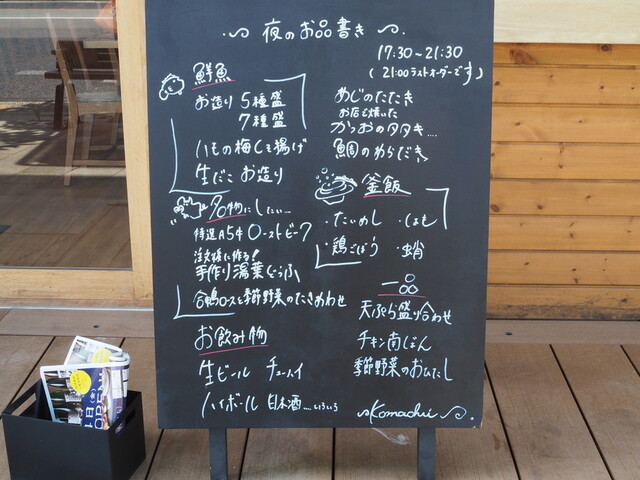 夜のお品書き
17:30~21:30
(21:00ラストオーダーです)
鮮魚
お造り 5種盛
7種盛
ハモの梅しそ揚げ
生だこ お造り
めじのたたき
お店で焼いた
かつおのタタキ....
鯛のわらだき
名物にしたい...
特選A5牛ローストビーフ
注文後に作る!
手作り湯葉どうふ
合鴨ロースと季節野菜のたきあわせ
釜飯
・たいめし ・はも
・鶏ごぼう ・蛸
お飲み物
生ビール チューハイ
ハイボール 日本酒....いろいろ
一品
天ぷら盛り合わせ
チキン南ばん
季節野菜のおひたし
~Komachi~